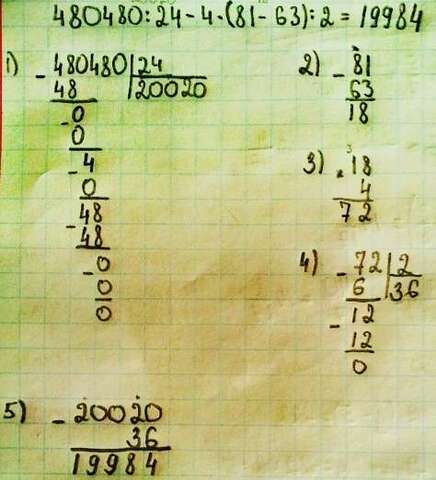 480480:24-4·(81-63):2=19984
1) - 480480 | 24
48 | 20020
- 0
0
- 4
0
- 48
48
- 0
0
0
2) - 81
63
18
3) · 18
4
72
4) - 72 | 2
6 | 36
- 12
12
0
5) - 20020
36
19984